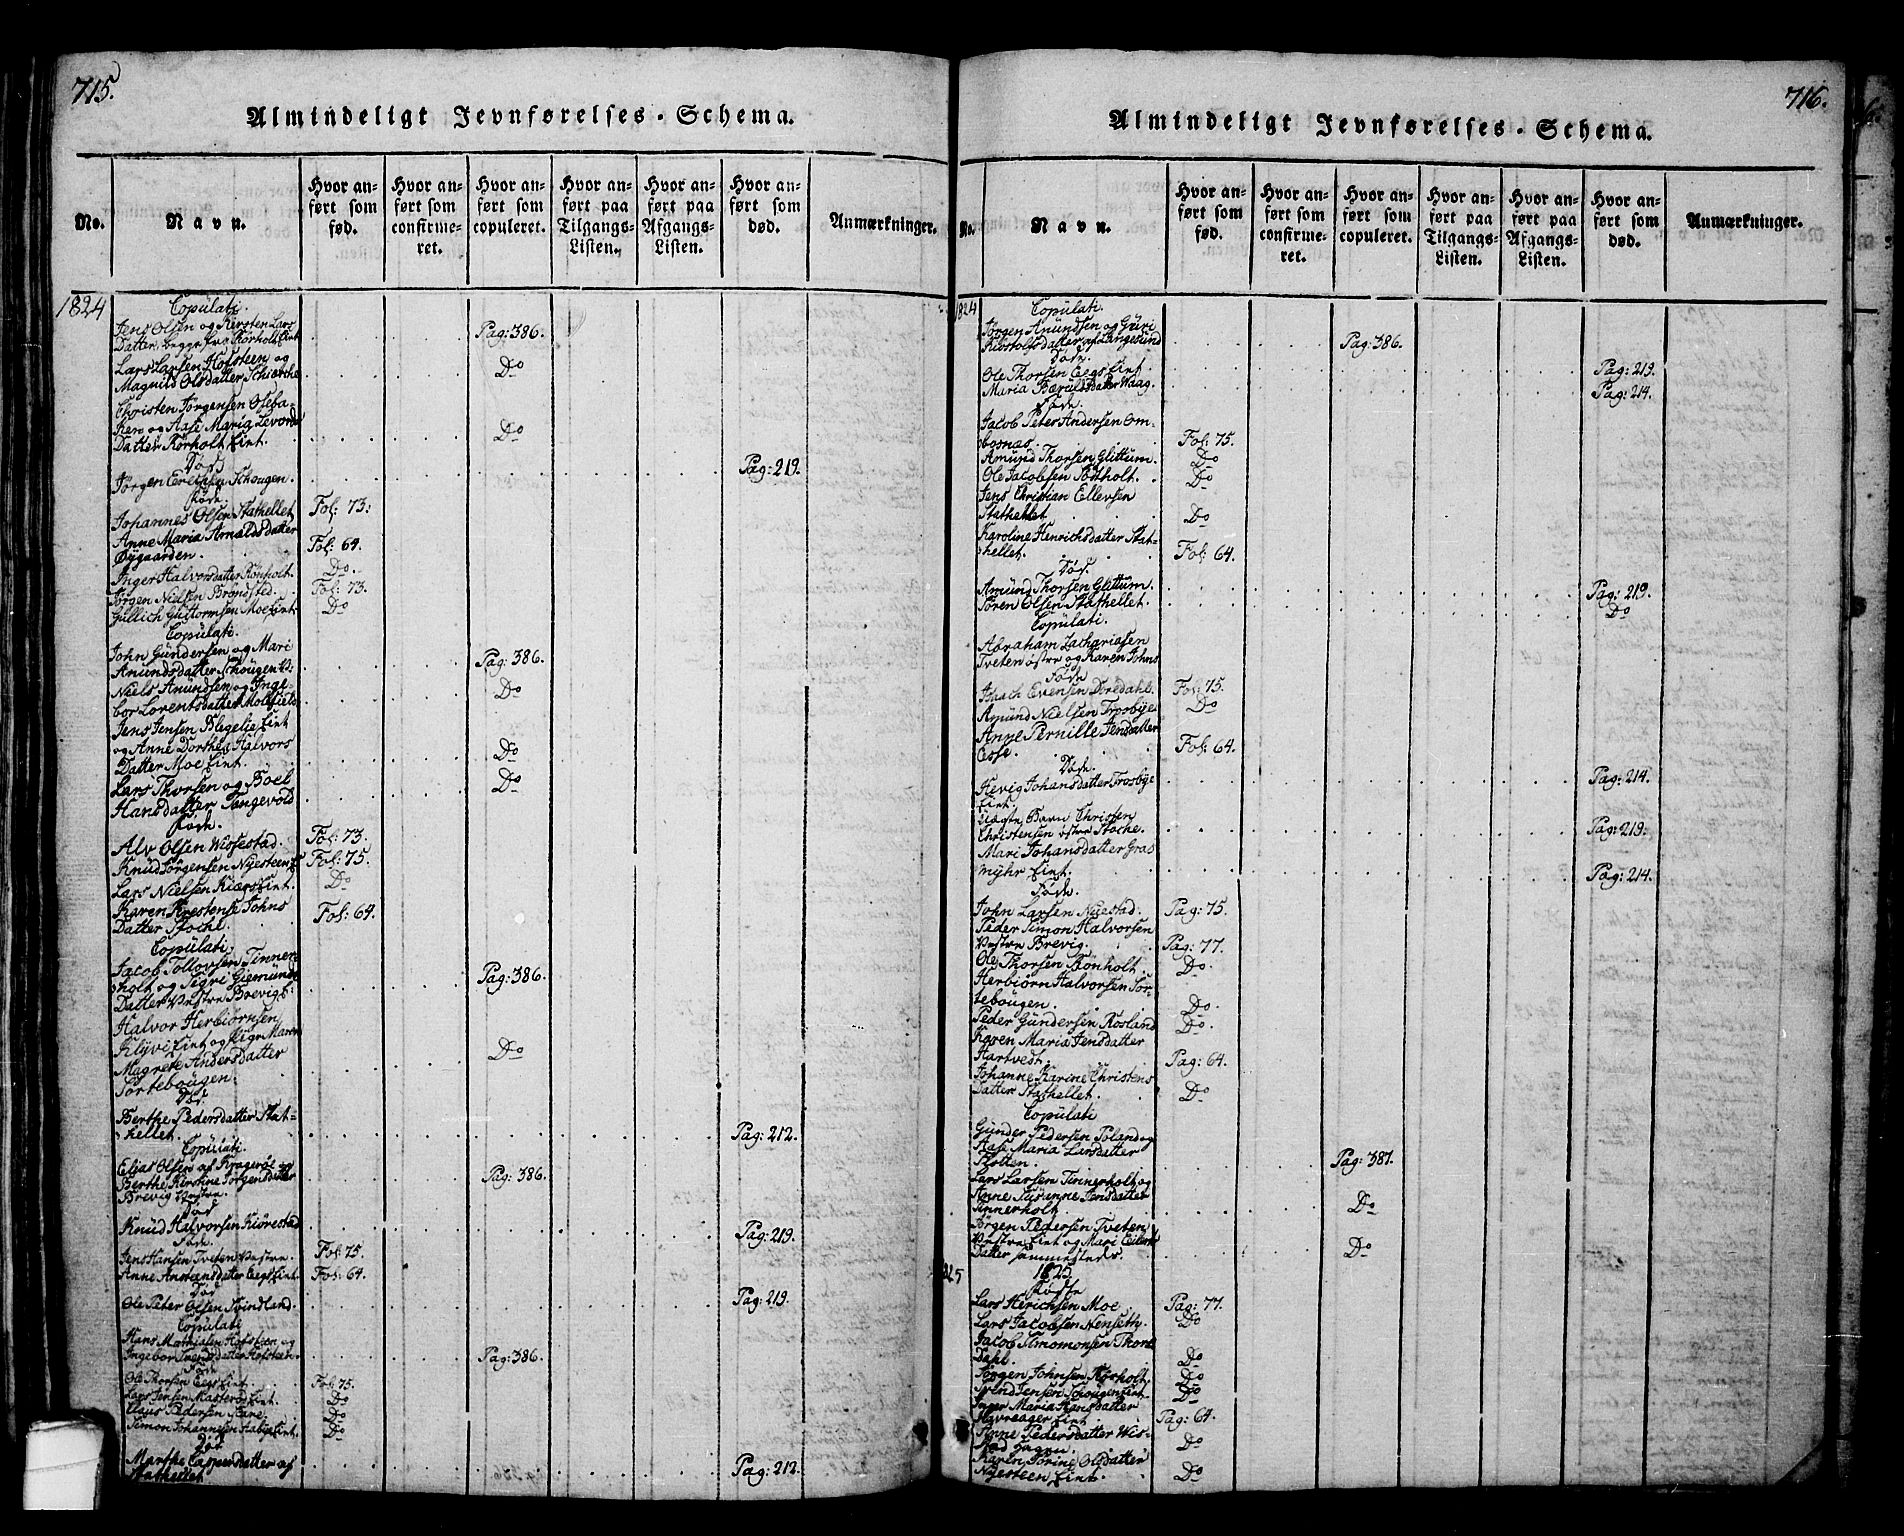 715.
Almindeligt Jevnførelses-Schema.
No.
Navn.
Hvor anført som fød.
Hvor anført som confirmeret.
Hvor anført som copuleret.
Hvor anført paa Tilgangs-Listen.
Hvor anført paa Afgangs-Listen.
Hvor anført som død.
Anmærkninger.
1824
Copulati.
Jens Olsen og Kirsten Lars
Datter, begge fra Rørholt Eint Pag: 386.
Lars Larsen Hofsteen og
Magnild Olsdatter Schierche Do
Christen Jørgensen Oseba-
ken og Aase Maria Levords
Datter Rørholt Eint. Do
Død
Jørgen Erichsen Schougen. Pag: 219.
Føde.
Johannes Olsen Stathellet Fol: 73:
Anne Maria Arnoldsdatter
Øygaarden. Fol: 64.
Inger Halvorsdatter Rønholt. Do.
Jørgen Nielsen Brøndsted. Fol: 73.
Gullich Guttormsen Moe Eint. Do
Copulati.
John Gundersen og Mari
Amundsdatter Schougen Pag: 386.
Niels Amundsen og Inge-
bor Lorentsdatter Do
Jens Jensen Plegelie Eint
og Anne Dorthe Halvors
Datter Moe Eint. Do
Lars Thorsen og Boel
Hansdatter Tangevold Do
Føde.
Alv Olsen Wissestad. Fol: 73.
Knud Jørgensen Nyesteen E Fol: 75.
Lars Nielsen Kiærs Eint. Do
Karen Krestense Johns
Datter Stochl. Fol: 64.
Copulati.
Jacob Tollovsen Tinner-
holt og Sigri Giemunds
Datter Præstre Brevigs: Pag: 386.
Halvor Herbiørnsen
Klyvi Eint og Maren
Magrete Andersdatter
Sortebougen. Do
Død.
Berthe Pedersdatter Stat-
hellet. Pag: 212.
Copulati.
Elias Olsen af Kragerøe og
Berthe Kirstine Jørgensdatter
Brevig Pag: 386.
Død
Knud Halvorsen Kiørestad Pag: 219.
Føde.
Jens Hansen Tveten Fol: 75.
Anne Anstensdatter Eegs Eint. Fol: 64.
Død
Ole Peter Olsen Svindland. Pag: 219.
Copulati
Hans Mathiasen Hofsteen og
Ingebor Svendsdatter Hofsteen. Pag: 386.
Føde
Ole Thorsen Eegs Eint. Fol: 75.
Lars Jensen Eint. Do
Claus Pedersen Do
Simon Johannesen Eint. Do
Død
Marthe datter af
Stathellet Pag: 212.
716.
Almindeligt Jevnførelses-Schema.
No.
Navn.
Hvor anført som fød.
Hvor anført som confirmeret.
Hvor anført som copuleret.
Hvor anført paa Tilgangs-Listen.
Hvor anført paa Afgangs-Listen.
Hvor anført som død.
Anmærkninger.
1824
Copulati.
Jørgen Amundsen og Guri
Kiostolfsdatter af Langesund Pag: 386.
Døde.
Ole Thorsen Eegs Eint Pag: 219.
Maria Bærulsdatter Waag. Pag: 214.
Føde.
Jacob Peter Andersen Om-
bosnæs. Fol: 75.
Amund Thorsen Glittum. Do
Ole Jacobsen Rørholt. Do
Jens Christian Ellevsen
Stathellet Do
Karoline Henrichsdatter Stat-
hellet. Fol: 64.
Død.
Amund Thorsen Glittum. Pag: 219.
Søren Olsen Stathellet. Do
Copulati.
Abraham Zachariasen
Tveten østre og Karen Johns
Føde
Isach Evensen Dordahl. Fol: 75.
Amund Nielsen Trosbye Do
Anne Pernille Jensdatter
Esse. Fol: 64.
Døde.
Hevig Johansdatter Trosbye
Eint. Pag: 214.
Uægte Barn Christen
Christensen østre Stoche. Pag: 219:
Mari Johansdatter Gras
myhr Eint. Pag: 214.
Føde.
John Larsen Nyestad. Pag: 75.
Peder Simon Halvorsen
Brevig. Pag: 77.
Ole Thorsen Rønholt. Do.
Herbiørn Halvorsen Sor-
tebougen. Do.
Peder Gundersen Rosland Do.
Karen Maria Jensdatter
Hartvedt. Pag: 64.
Johanne Karine Christens
Datter Stathellet. Do
Copulati
Gunder Pedersen Roland og
Aase Maria Larsdatter
Flotten. Pag: 387.
Lars Larsen Tinnerholt og
Anne Susanne Jensdatter
Tinnerholt. Do
Jørgen Pedersen Tveten
Eint og Mari Eilerts
Datter sammesteds. Do
1825
Fødte
Lars Henrichsen Moe Pag: 77.
Lars Jacobsen Nenseth. Do
Jacob Simonsen Thore
Dahl. Do
Jørgen Johnsen Rørholt. Do
Svend Jensen Schougen Eint. Do
Inger Maria Hansdatter
Havreager Eint Pag: 64.
Anne Pedersdatter Wis-
stad Hagen. Do
Karen Torine Olsdatter
Nyesteen Eint. Do